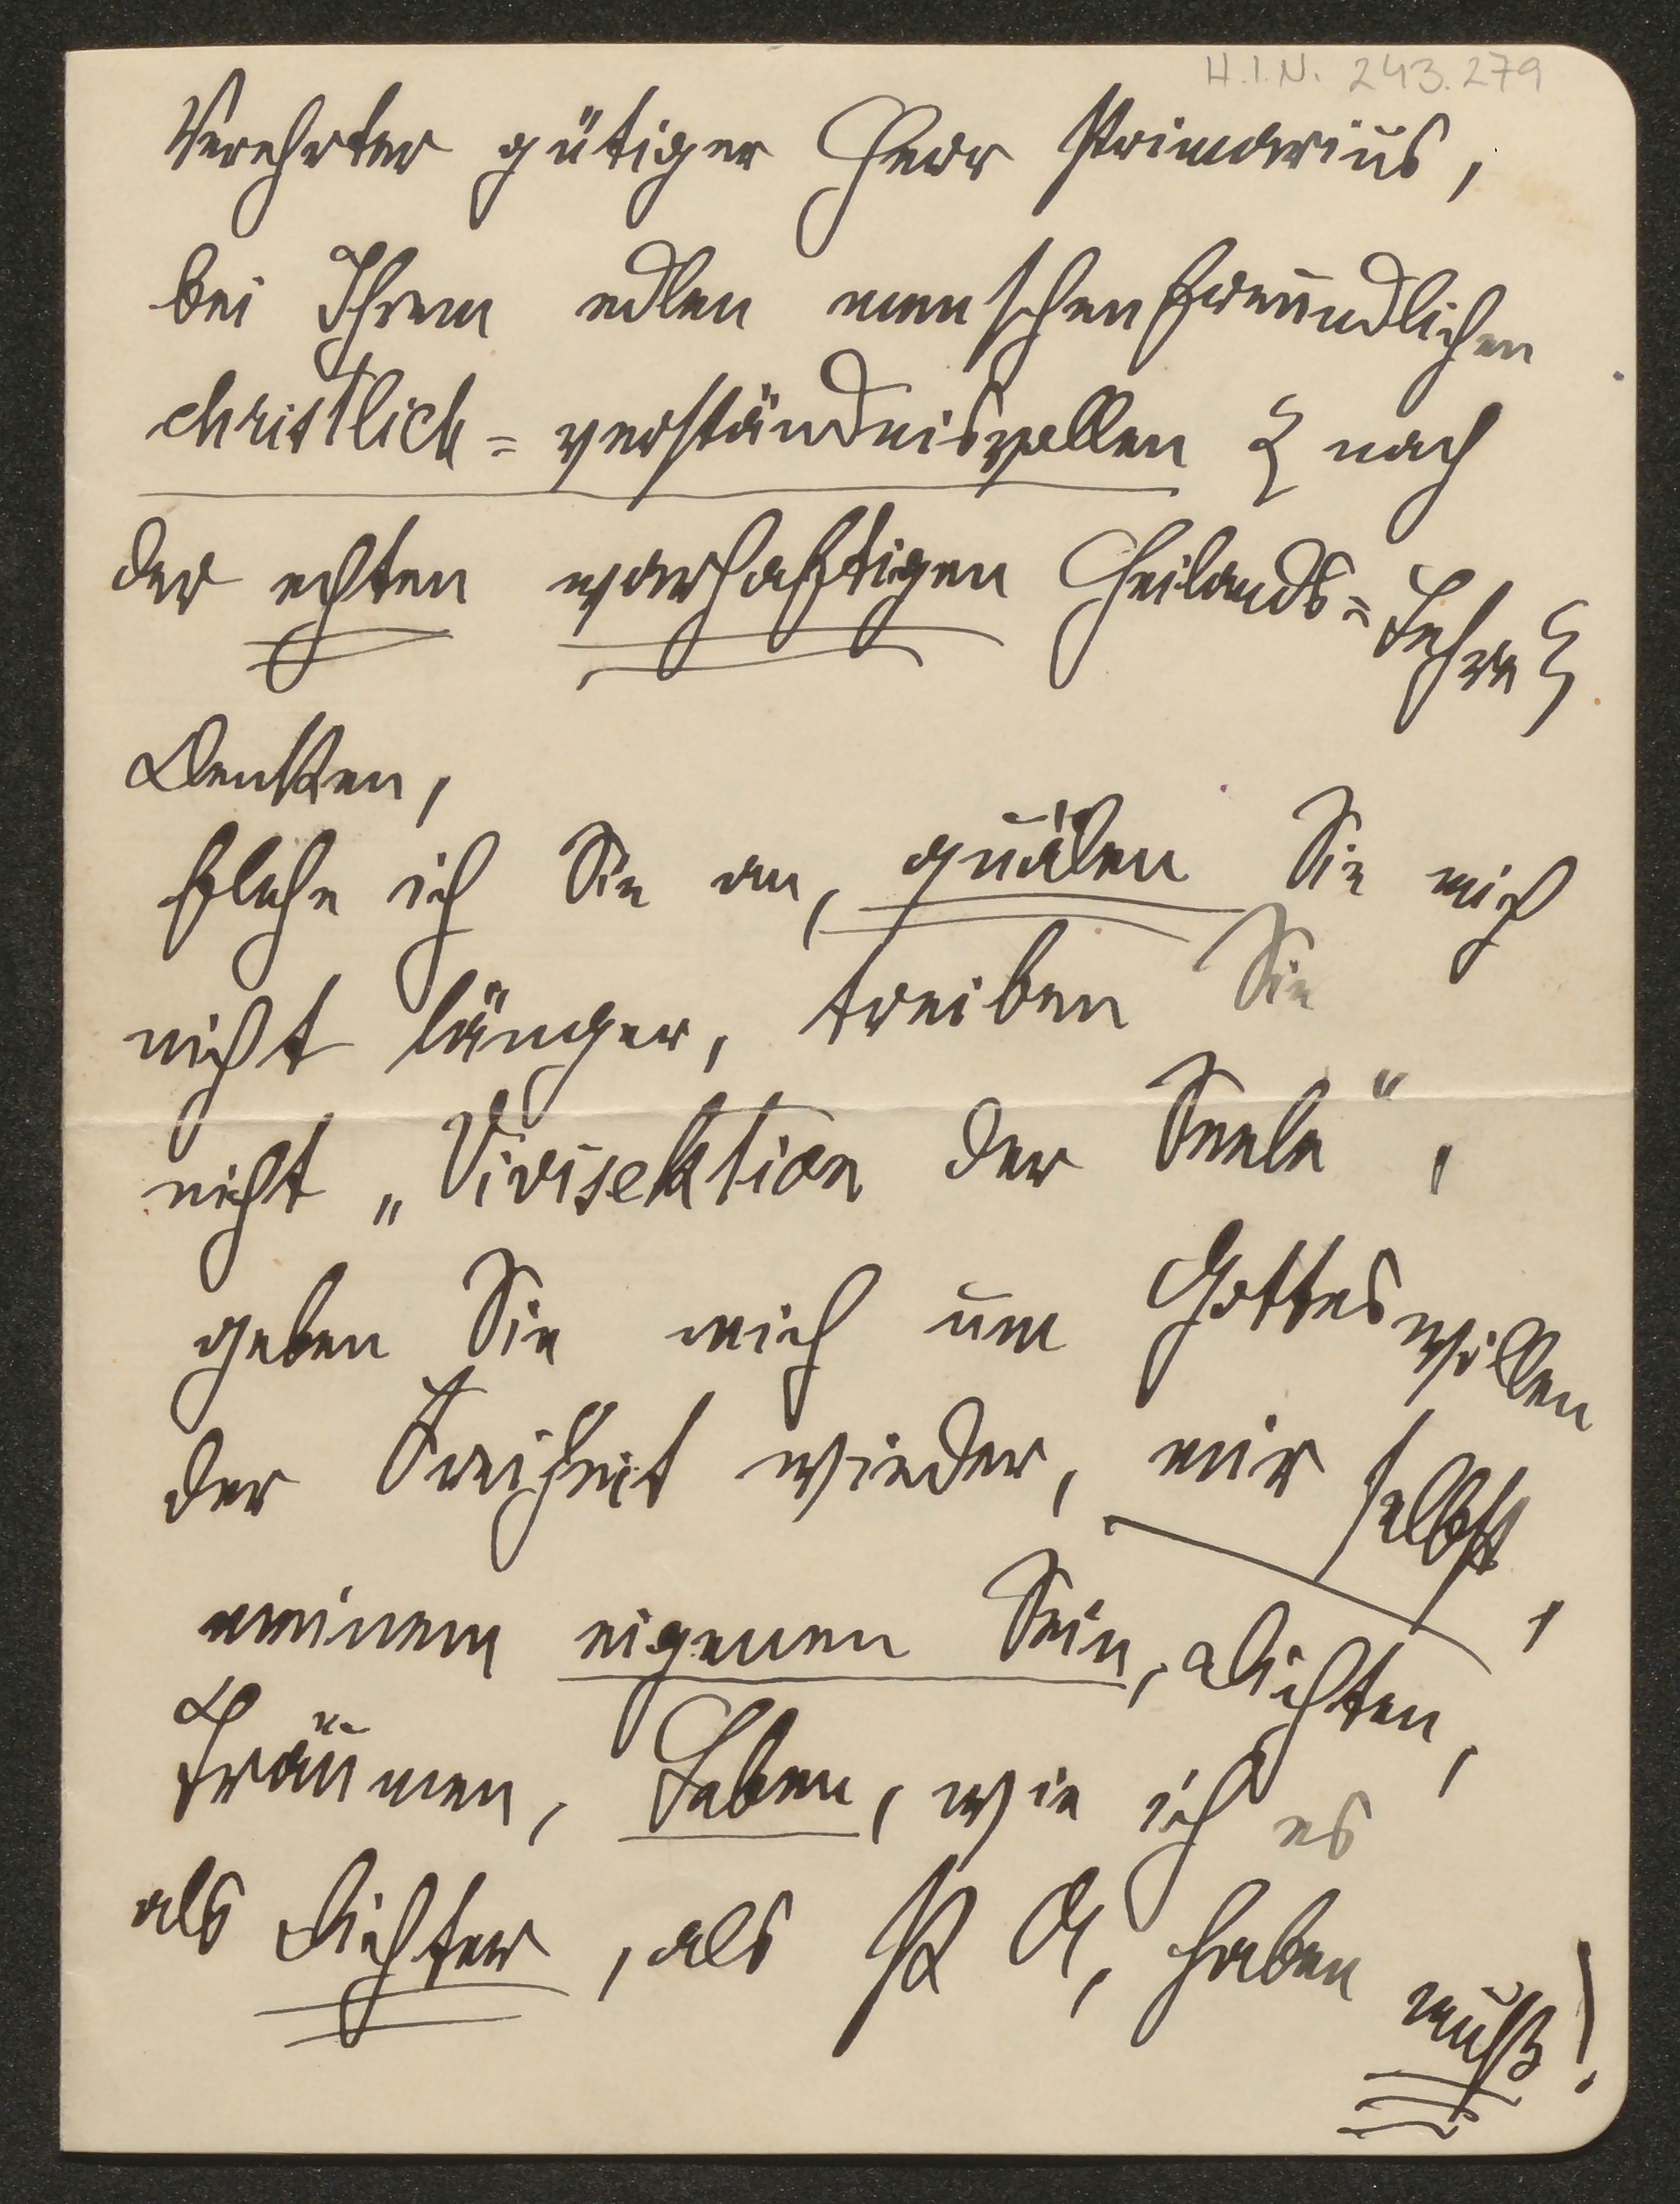 H.I.N. 243.279
Verehrter gütiger Herr Primarius,
bei Ihrem edlen menschenfreundlichen
christlich=verständnisvollen { nach
der echten warhaftigen Heilands=Lehre }
Denken,
flehe ich Sie an, quälen Sie mich
nicht länger, treiben Sie
nicht „Vivisektion der Seele“,
geben Sie mich um Gotteswillen
der Freiheit wieder, mir selbst,
meinem eigenen Sein, Dichten,
Träumen, Leben, wie ich es
als Dichter, als P A, haben
muß!